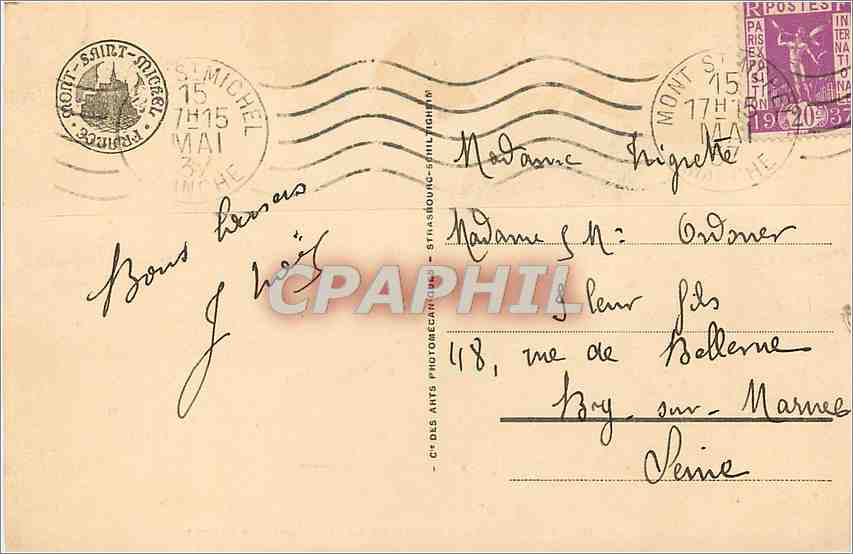 MONT-SAINT-MICHEL · FRANCE ·
ST MICHEL
15
7H15
MAI
37
MANCHE
MONT ST MICHEL
15
17H15
MAI
MANCHE
RF POSTES
PARIS EXPOSITION
INTERNATIONALE
1937
20c
Bons baisers
J Noël
CPAPHIL
- Cie DES ARTS PHOTOMÉCANIQUES - STRASBOURG-SCHILTIGHEIM
Madame
Madame & Mr Ordoner
& leur fils
48, rue de Bellevue
Bry-sur-Marne
Seine